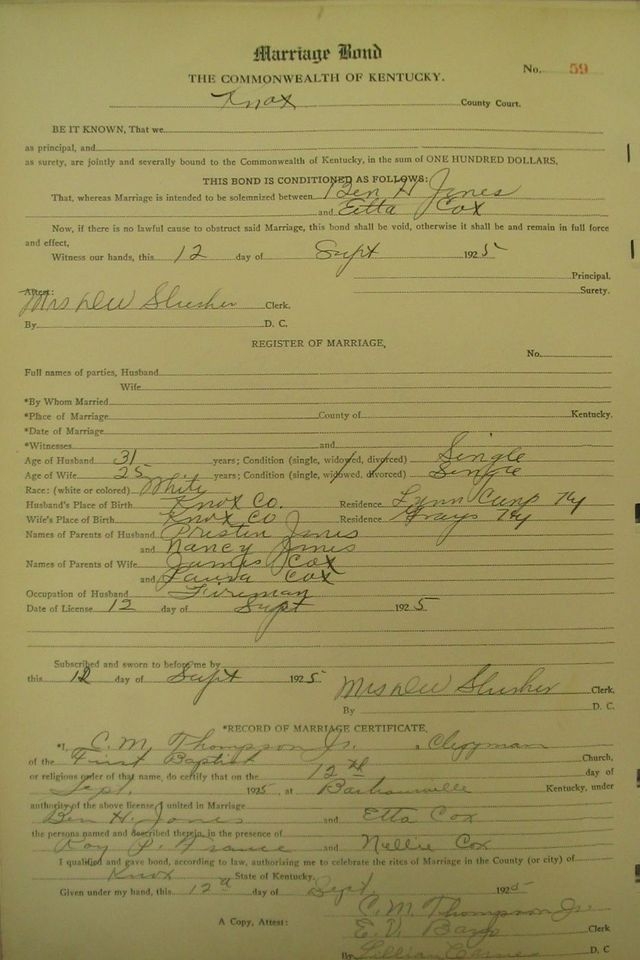 Marriage Bond
No. 59
THE COMMONWEALTH OF KENTUCKY.
Knox County Court.
BE IT KNOWN, That we
as principal, and
as surety, are jointly and severally bound to the Commonwealth of Kentucky, in the sum of ONE HUNDRED DOLLARS,
THIS BOND IS CONDITIONED AS FOLLOWS:
That, whereas Marriage is intended to be solemnized between Ben H Jones
and Etta Cox
Now, if there is no lawful cause to obstruct said Marriage, this bond shall be void, otherwise it shall be and remain in full force
and effect,
Witness our hands, this 12 day of Sept 1925
Principal.
Surety.
Attest:
Mrs D W Slusher Clerk.
By D. C.
REGISTER OF MARRIAGE,
No.
Full names of parties, Husband
Wife
*By Whom Married
*Place of Marriage County of Kentucky.
*Date of Marriage
*Witnesses and
Age of Husband 31 years; Condition (single, widowed, divorced) Single
Age of Wife 25 years; Condition (single, widowed, divorced) Single
Race: (white or colored) White
Husband's Place of Birth Knox Co. Residence Lynn Camp Ky
Wife's Place of Birth Knox Co Residence Grays Ky
Names of Parents of Husband Jones
and Nancy Jones
Names of Parents of Wife James Cox
and Laura Cox
Occupation of Husband Fireman
Date of License 12 day of Sept 1925
Subscribed and sworn to before me by
this 12 day of Sept 1925
Mrs D W Slusher Clerk.
By D. C.
*RECORD OF MARRIAGE CERTIFICATE,
*I, C. M. Thompson Jr. a Clergyman
of the First Baptist Church,
or religious order of that name, do certify that on the 12th day of
Sept. 1925, at Barbourville Kentucky, under
authority of the above license I united in Marriage
Ben H. Jones and Etta Cox
the persons named and described therein, in the presence of
Roy P. France and Nellie Cox
I qualified and gave bond, according to law, authorizing me to celebrate the rites of Marriage in the County (or city) of
Knox State of Kentucky.
Given under my hand, this 12th day of Sept. 1925
C. M. Thompson Jr.
A Copy, Attest: E. V. Clerk
By Lillian D, C